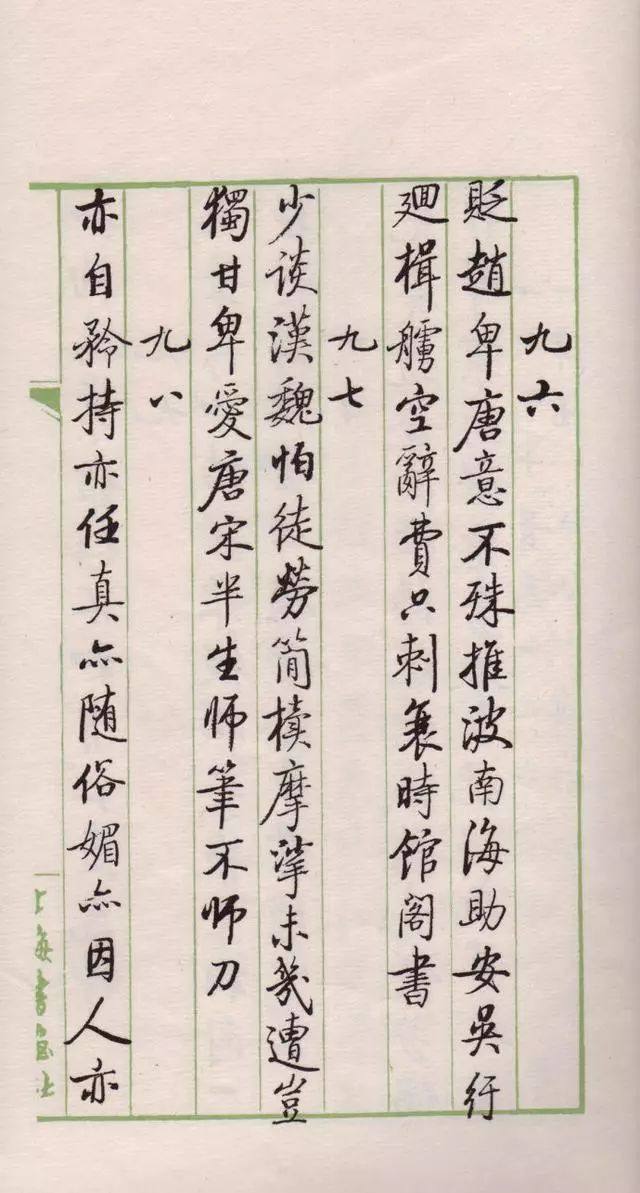 九六
貶趙卑唐意不殊推波南海助安吳纡
廻楫艣空辭費只刺衰時馆阁書
九七
少谈漢魏怕徒勞简牘摩挲未幾遭豈
獨甘卑愛唐宋半生师筆不师刀
九八
亦自矜持亦任真亦随俗媚亦因人亦
上海書画社